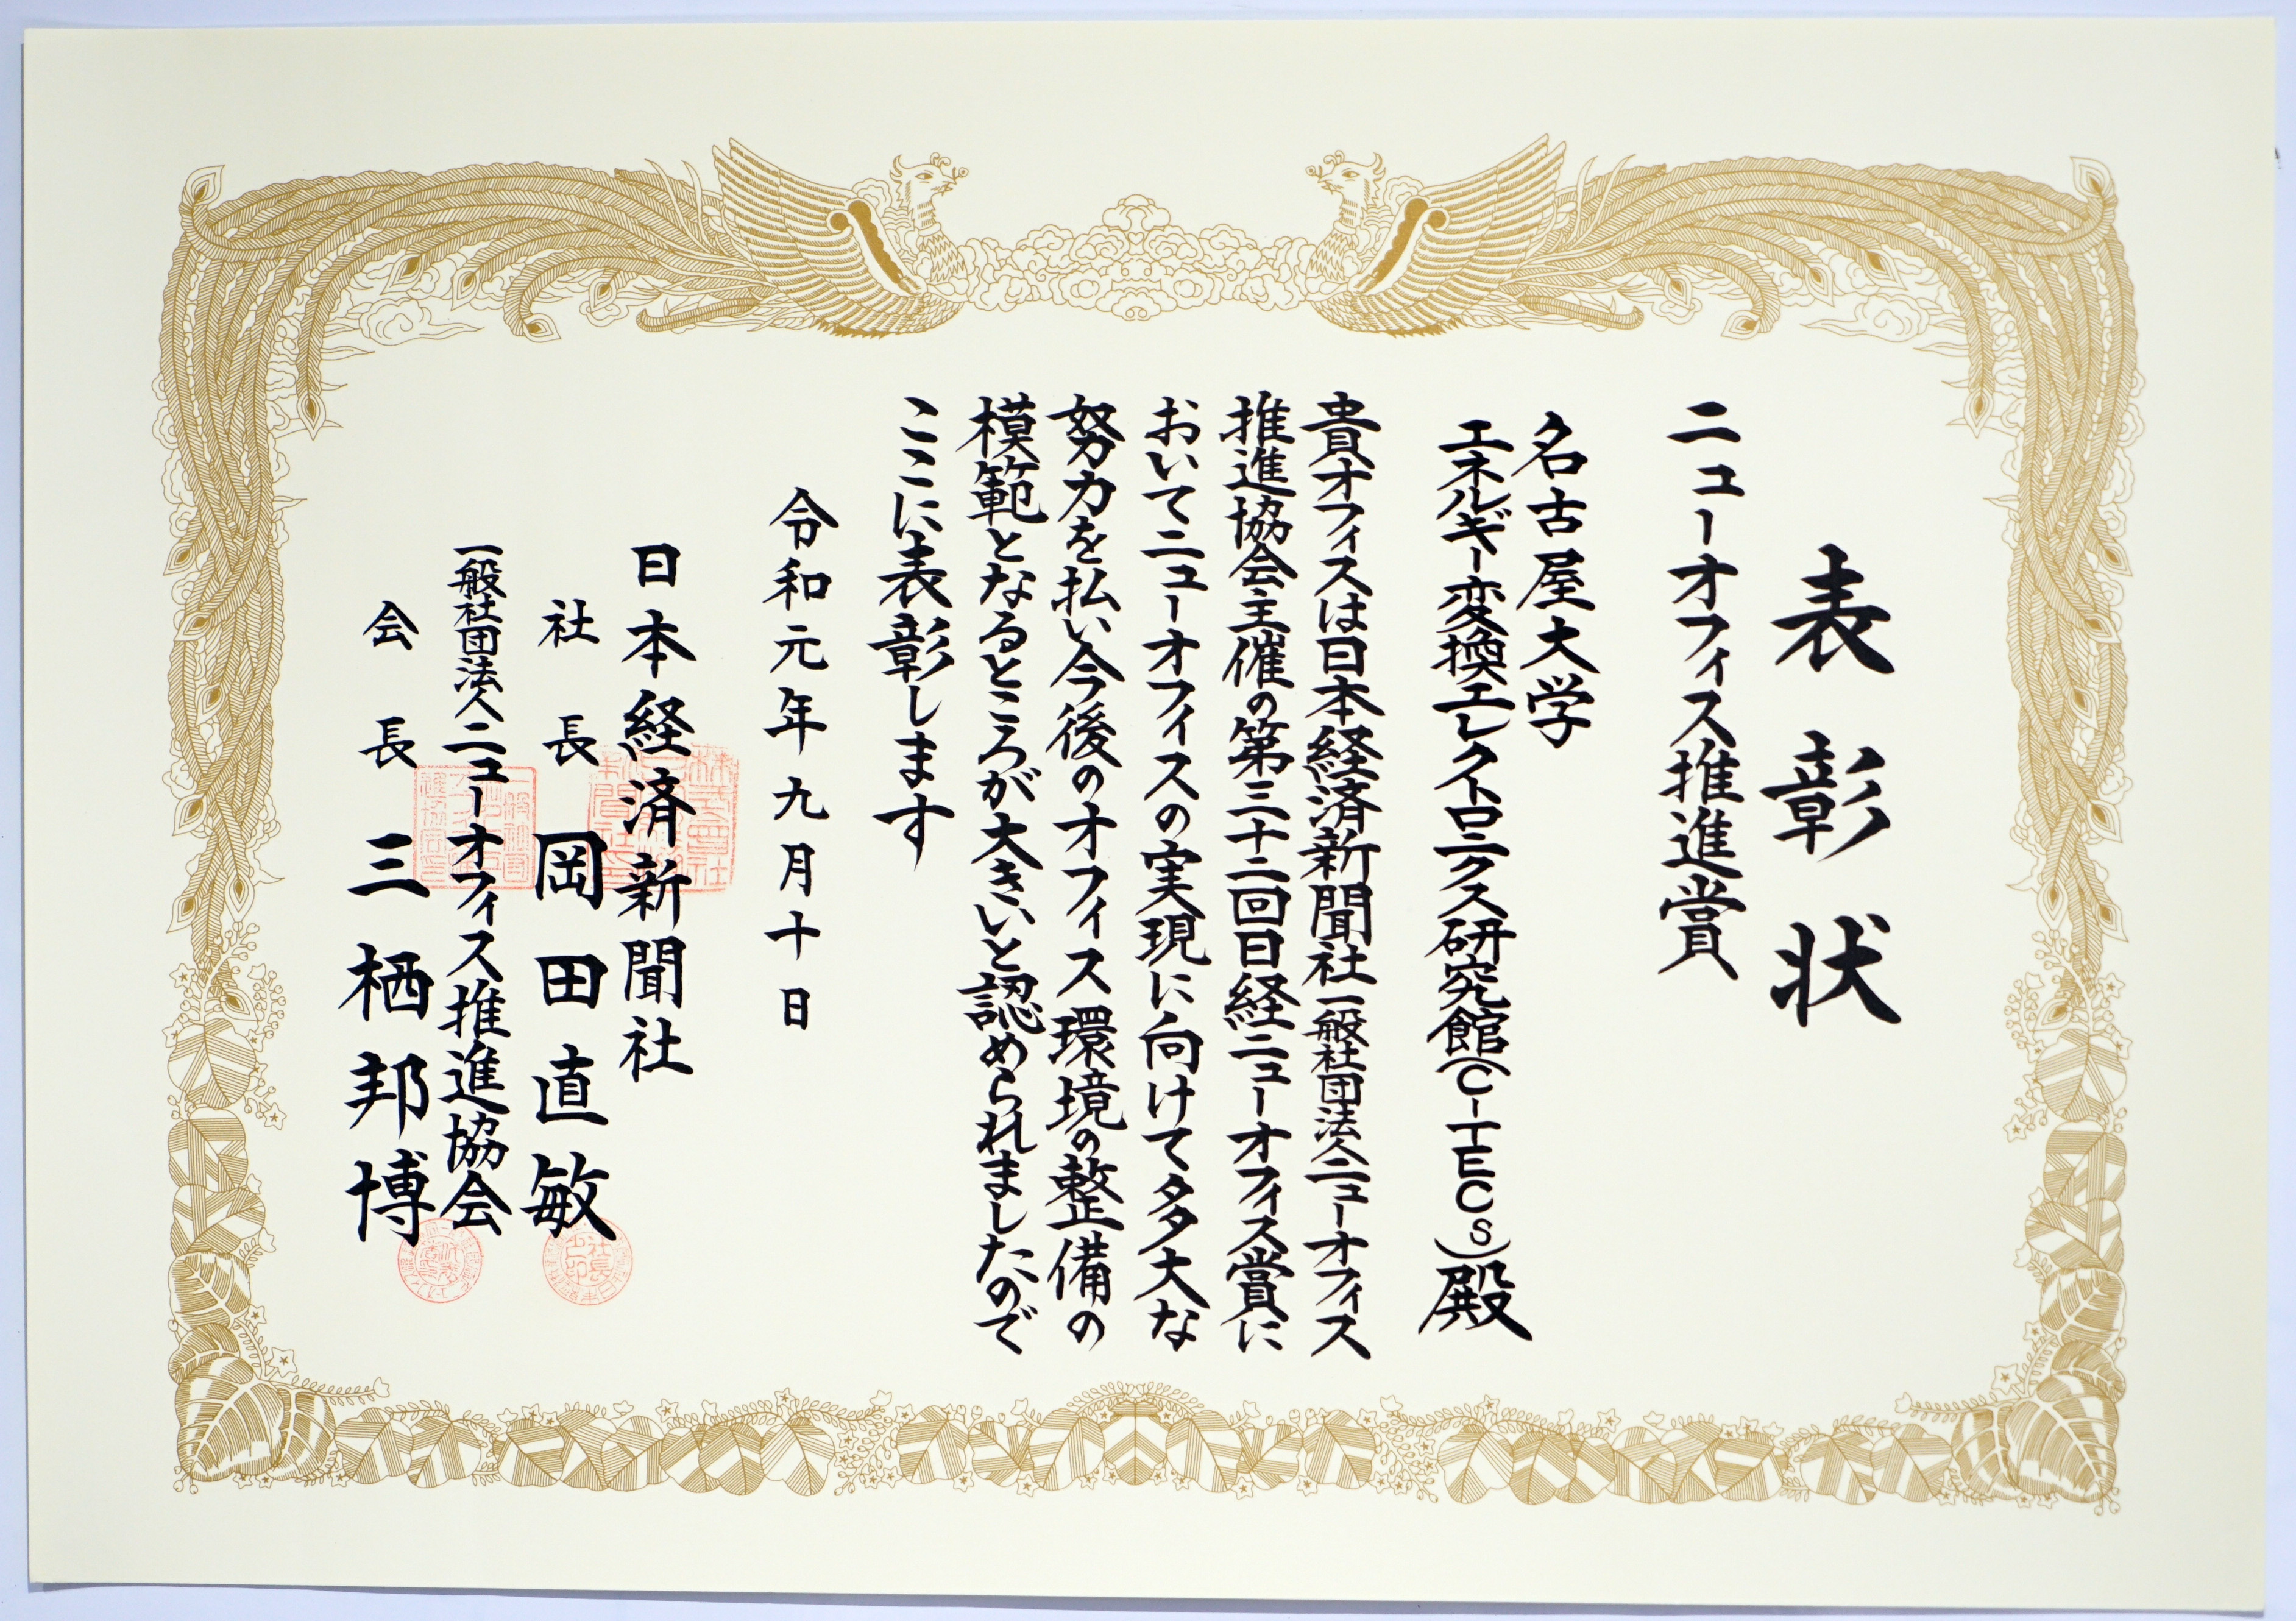 表彰状
ニューオフィス推進賞
名古屋大学
エネルギー変換エレクトロニクス研究館(C-TECs)殿
貴オフィスは日本経済新聞社一般社団法人ニューオフィス
推進協会主催の第三十二回日経ニューオフィス賞に
おいてニューオフィスの実現に向けて多大な
努力を払い今後のオフィス環境の整備の
模範となるところが大きいと認められましたので
ここに表彰します
令和元年九月十日
日本経済新聞社
社長 岡田直敏
一般社団法人ニューオフィス推進協会
会長 三栖邦博